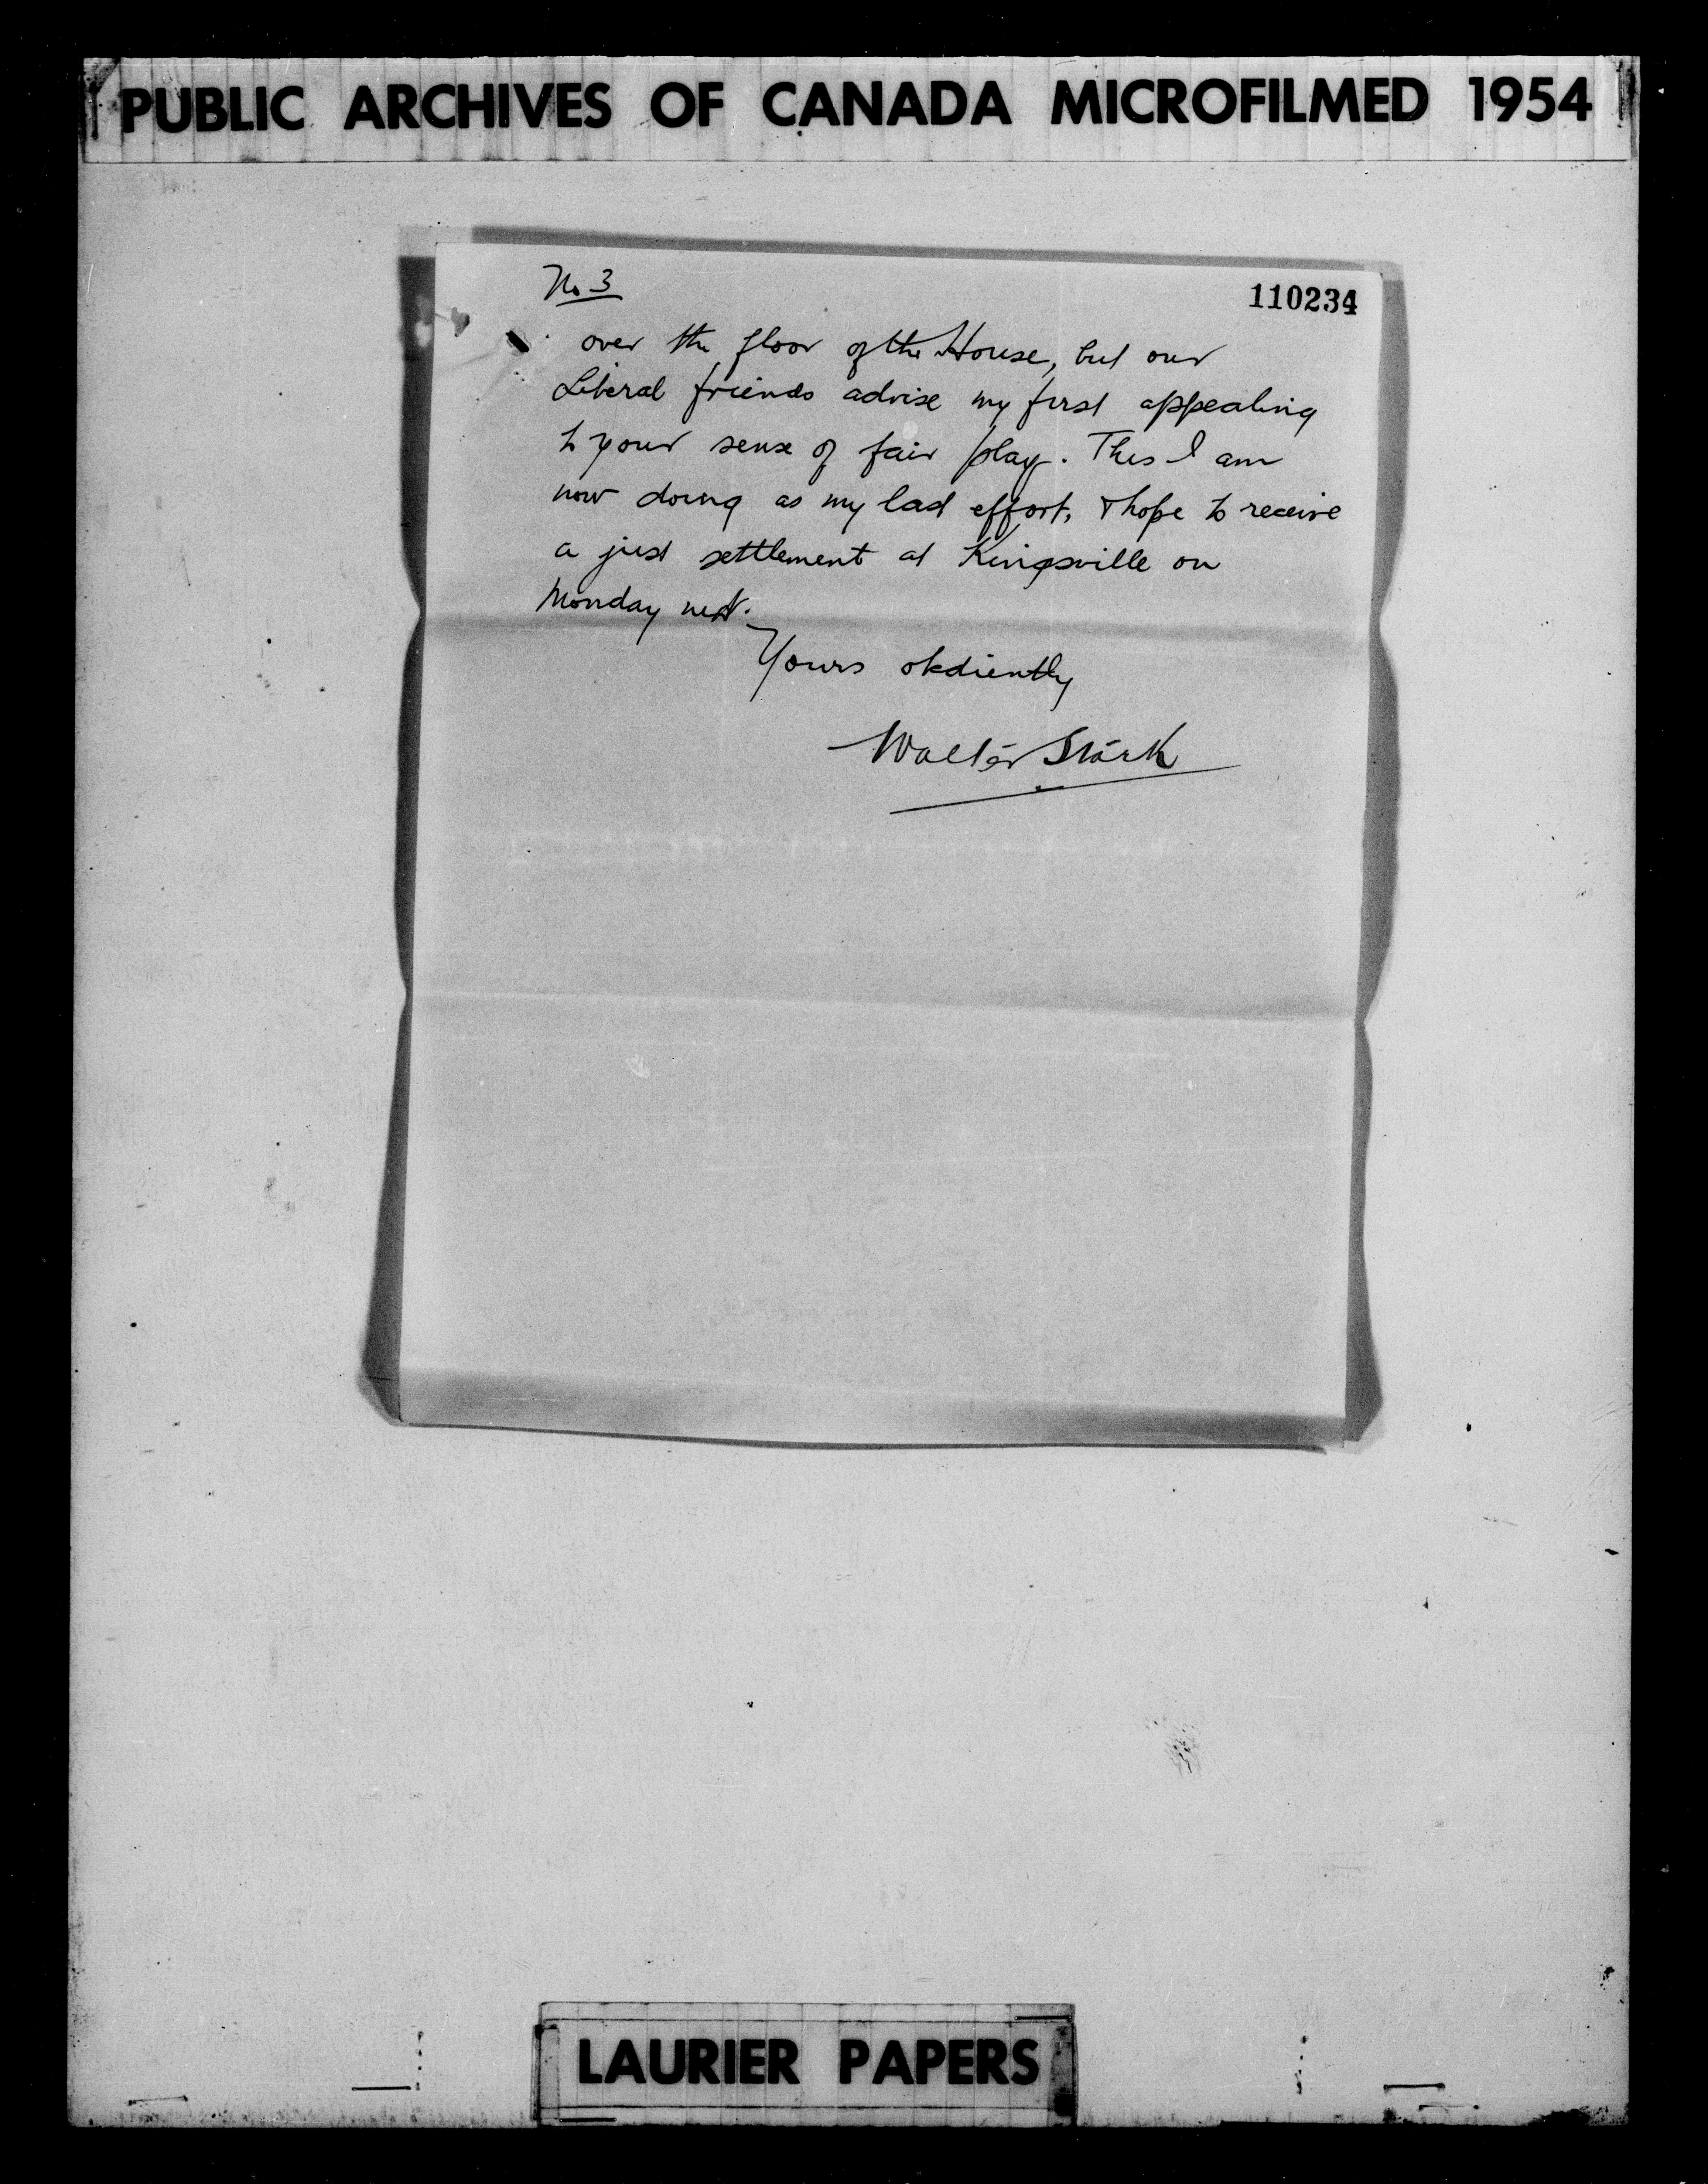 PUBLIC ARCHIVES OF CANADA MICROFILMED 1954
No 3
110234
over the floor of the House, but our
Liberal friends advise my first appealing
to your sense of fair play. This I am
now doing as my last effort, & hope to receive
a just settlement at Kingsville on
Monday next.
Yours obdiently
Walter Stark
LAURIER PAPERS